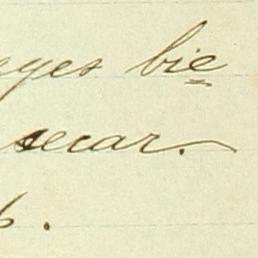 eyes bie
secar.
6.